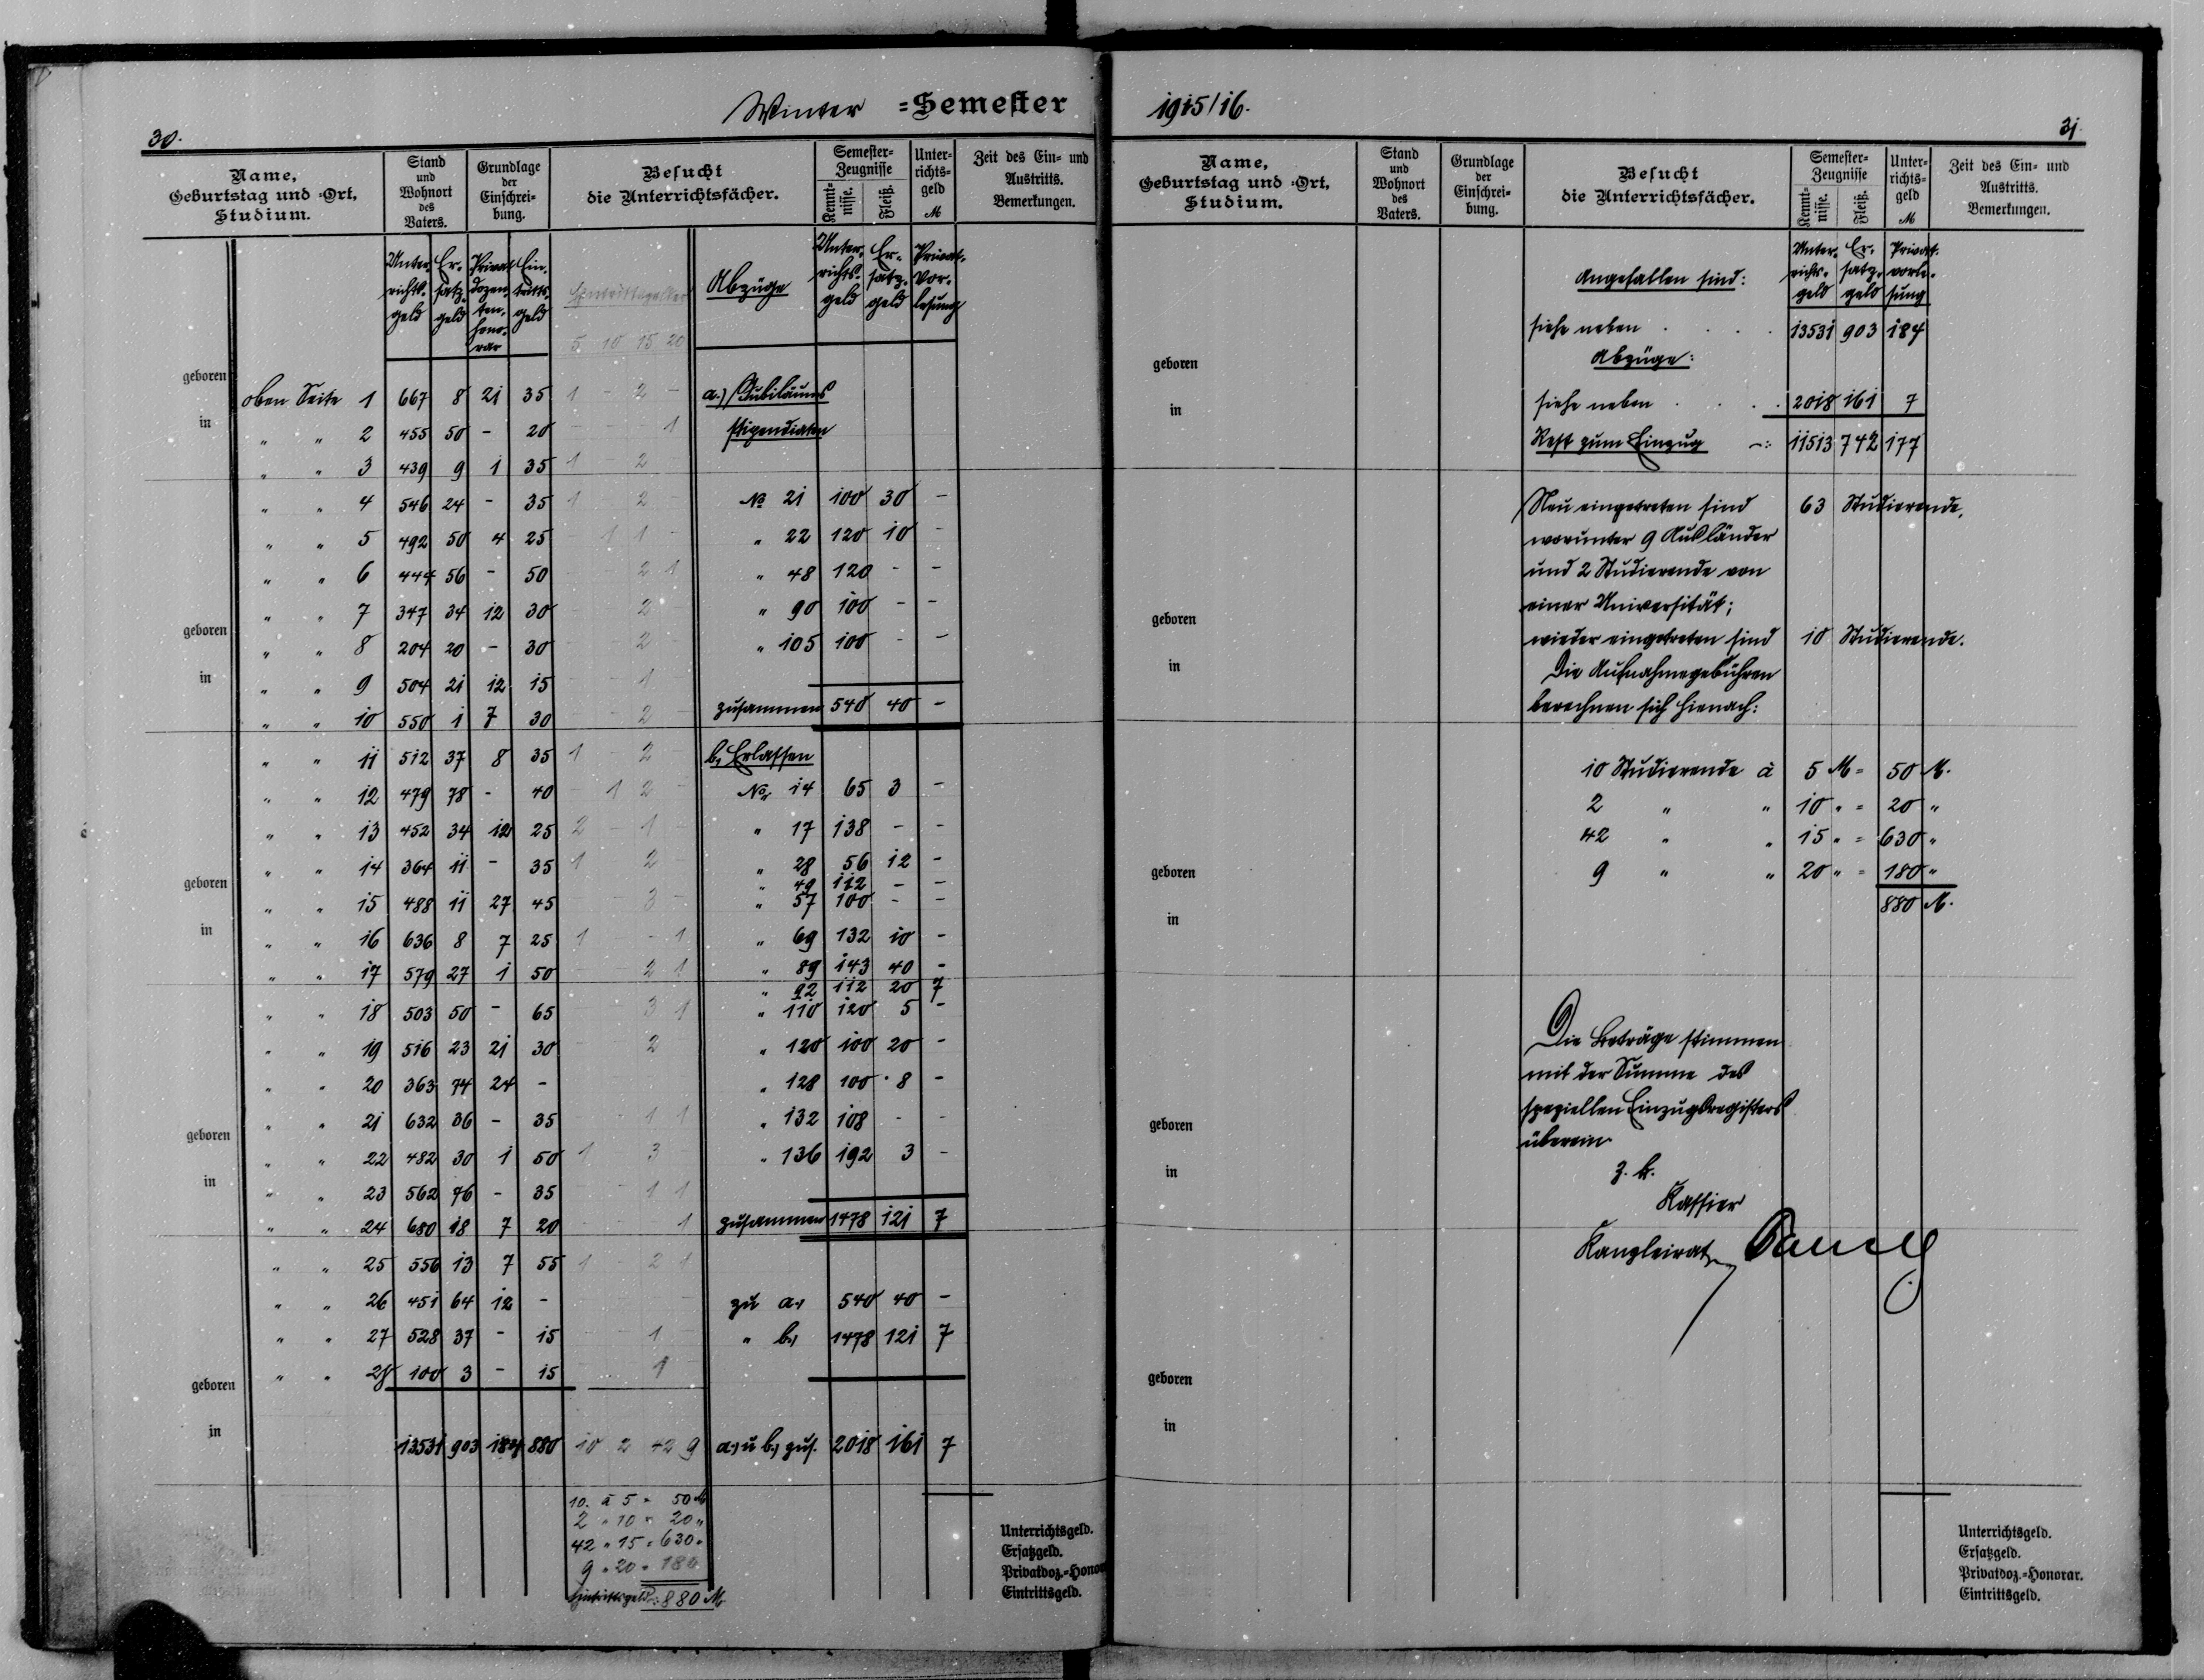 Winter =Semester 1915/16.
30.
31.
Name, Geburtstag und =Ort, Studium.
Stand und Wohnort des Vaters.
Grundlage der Einschrei= bung.
Besucht die Unterrichtsfächer.
Semester= Zeugnisse
Kennt= nisse.
Fleiß.
Unter= richts= geld M
Zeit des Ein= und Austritts. Bemerkungen.
Unter- richts- geld
Er- satz- geld
Privat- dozen- ten- hono- rar
Ein- tritts- geld
Eintrittsgelder
5 10 15 20
Abzüge
Unter- richts- geld
Er- satz- geld
Privat- Vor- lesung
geboren
in
oben Seite 1 667 8 21 35 1 - 2 - a.) Jubiläums
" " 2 455 50 - 20 - - - 1 stipendiaten
" " 3 439 9 1 35 1 - 2 -
" " 4 546 24 - 35 1 - 2 - No 21 100 30 -
" " 5 492 50 4 25 - 1 1 - " 22 120 10 -
" " 6 444 56 - 50 - - 2 1 " 48 120 - -
" " 7 347 34 12 30 - - 2 - " 90 100 - -
geboren
" " 8 204 20 - 30 - - 2 - " 105 100 - -
in
" " 9 504 21 12 15 - - 1 -
" " 10 550 1 7 30 - - 2 - zusammen 540 40 -
" " 11 512 37 8 35 1 - 2 - b, Erlassen
" " 12 479 78 - 40 - 1 2 - No 14 65 3 -
" " 13 452 34 12 25 2 - 1 - " 17 138 - -
" " 14 364 11 - 35 1 - 2 - " 28 56 12 -
" 49 112 - -
geboren
" " 15 488 11 27 45 - - 3 - " 57 100 - -
in
" " 16 636 8 7 25 1 - - 1 " 69 132 10 -
" " 17 579 27 1 50 - - 2 1 " 89 143 40 -
" 92 112 20 7
" " 18 503 50 - 65 - - 3 1 " 110 120 5 -
" " 19 516 23 21 30 - - 2 - " 120 100 20 -
" " 20 363 74 24 - " 128 100 8 -
" " 21 632 36 - 35 - - 1 1 " 132 108 - -
geboren
" " 22 482 30 1 50 1 - 3 - " 136 192 3 -
in
" " 23 562 76 - 35 - - 1 1
" " 24 680 18 7 20 - - - 1 zusammen 1478 121 7
" " 25 556 13 7 55 1 - 2 1
" " 26 451 64 12 - zu a, 540 40 -
" " 27 528 37 - 15 - - 1 - " b, 1478 121 7
" " 28 100 3 - 15 1
geboren
in
13531 903 184 880 10 2 42 9 a, u b, zus. 2018 161 7
10. à 5 = 50 M
2 " 10 = 20 "
42 " 15 = 630 "
9 " 20 = 180
Eintrittsgeld: 880 M
Unterrichtsgeld.
Ersatzgeld.
Privatdoz.=Honor
Eintrittsgeld.
Name, Geburtstag und =Ort, Studium.
Stand und Wohnort des Vaters.
Grundlage der Einschrei= bung.
Besucht die Unterrichtsfächer.
Semester= Zeugnisse
Kennt= nisse.
Fleiß.
Unter= richts= geld M
Zeit des Ein= und Austritts. Bemerkungen.
Angefallen sind:
Unter- richts- geld
Er- satz- geld
Privat- vorle- sung
siehe neben . . . . 13531 903 184
Abzüge:
geboren
siehe neben . . . . 2018 161 7
in
Rest zum Einzug -: 11513 742 177
Neu eingetreten sind 63 Studierende,
worunter 9 Ausländer
und 2 Studierende von
einer Universität;
geboren
wieder eingetreten sind 10 Studierende.
in
Die Aufnahmegebühren
berechnen sich hienach:
10 Studierende à 5 M = 50 M.
2 " " 10 " = 20 "
42 " " 15 " = 630 "
geboren
9 " " 20 " = 180 "
880 M.
in
Die Beträge stimmen
mit der Summe des
speziellen Einzugsregisters
überein
geboren
in
z. B.
Kassier
Kanzleirat
geboren
in
Unterrichtsgeld.
Ersatzgeld.
Privatdoz.=Honorar.
Eintrittsgeld.